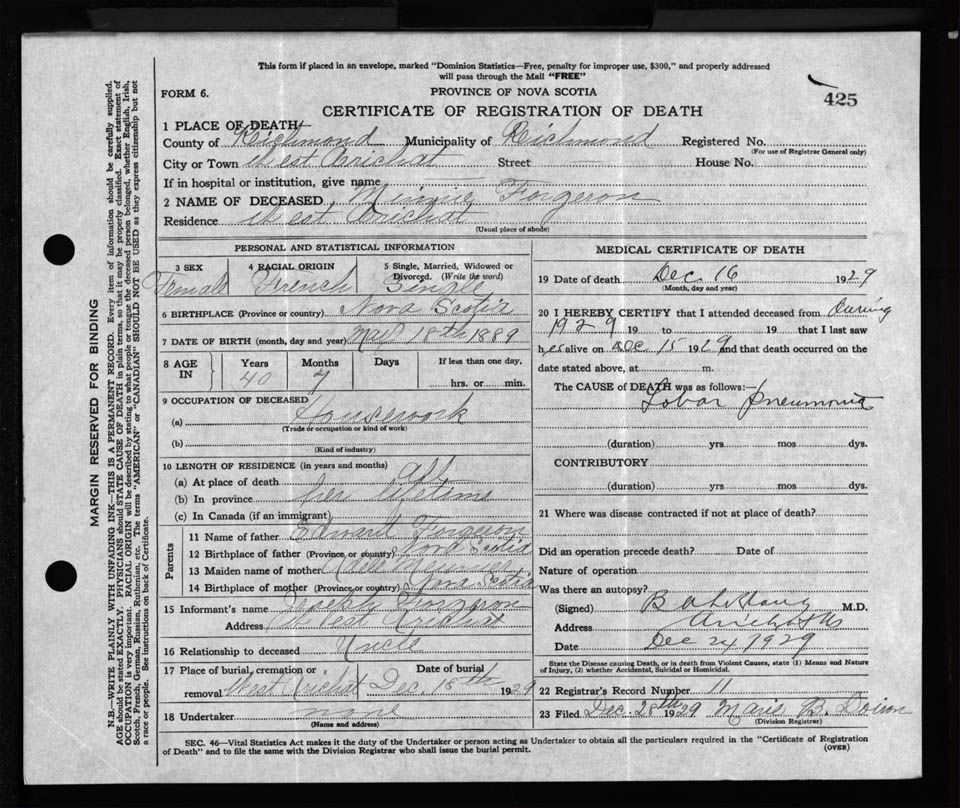 This form if placed in an envelope, marked "Dominion Statistics—Free, penalty for improper use, $300," and properly addressed
will pass through the Mail "FREE"
FORM 6.
PROVINCE OF NOVA SCOTIA
425
CERTIFICATE OF REGISTRATION OF DEATH
1 PLACE OF DEATH
County of Richmond Municipality of Richmond Registered No.
(For use of Registrar General only)
City or Town West Arichat Street House No.
If in hospital or institution, give name
2 NAME OF DECEASED Minnie Forgeron
Residence West Arichat
(Usual place of abode)
PERSONAL AND STATISTICAL INFORMATION
3 SEX 4 RACIAL ORIGIN 5 Single, Married, Widowed or
Divorced. (Write the word)
Female French Single
6 BIRTHPLACE (Province or country) Nova Scotia
7 DATE OF BIRTH (month, day and year) May 18th 1889
8 AGE IN Years Months Days If less than one day,
40 7 hrs. or min.
9 OCCUPATION OF DECEASED
(a) Housework
(Trade or occupation or kind of work)
(b)
(Kind of industry)
10 LENGTH OF RESIDENCE (in years and months)
(a) At place of death all
(b) In province her lifetime
(c) In Canada (if an immigrant)
Parents
11 Name of father Edward Forgeron
12 Birthplace of father (Province or country) Nova Scotia
13 Maiden name of mother
14 Birthplace of mother (Province or country) Nova Scotia
15 Informant's name Forgeron
Address West Arichat
16 Relationship to deceased Uncle
17 Place of burial, cremation or Date of burial
removal West Arichat Dec. 18th 1929
18 Undertaker none
(Name and address)
MEDICAL CERTIFICATE OF DEATH
19 Date of death Dec 16 1929
(Month, day and year)
20 I HEREBY CERTIFY that I attended deceased from During
1929 19 to 19 that I last saw
her alive on Dec 15 1929 and that death occurred on the
date stated above, at m.
The CAUSE of DEATH was as follows:—
Lobar pneumonia
(duration) yrs mos dys.
CONTRIBUTORY
(duration) yrs mos dys.
21 Where was disease contracted if not at place of death?
Did an operation precede death? Date of
Nature of operation
Was there an autopsy?
(Signed) M.D.
Address Arichat NS
Date Dec 24 1929
State the Disease causing Death, or in death from Violent Causes, state (1) Means and Nature
of Injury, (2) whether Accidental, Suicidal or Homicidal.
22 Registrar's Record Number 11
23 Filed Dec 28th 1929 Marie B. Doiron
(Division Registrar)
SEC. 46—Vital Statistics Act makes it the duty of the Undertaker or person acting as Undertaker to obtain all the particulars required in the "Certificate of Registration
of Death" and to file the same with the Division Registrar who shall issue the burial permit.
(OVER)
MARGIN RESERVED FOR BINDING
N.B.—WRITE PLAINLY WITH UNFADING INK—THIS IS A PERMANENT RECORD. Every item of information should be carefully supplied.
AGE should be stated EXACTLY. PHYSICIANS should STATE CAUSE OF DEATH in plain terms, so that it may be properly classified. Exact statement of
OCCUPATION is very important. RACIAL ORIGIN will be described by stating to what people or tongue the deceased person belonged, whether English, Irish,
Scotch, French, German, Russian, Ruthenian, etc. The terms "AMERICAN" or "CANADIAN" SHOULD NOT BE USED as they express citizenship but not
a race or people. See instructions on back of Certificate.